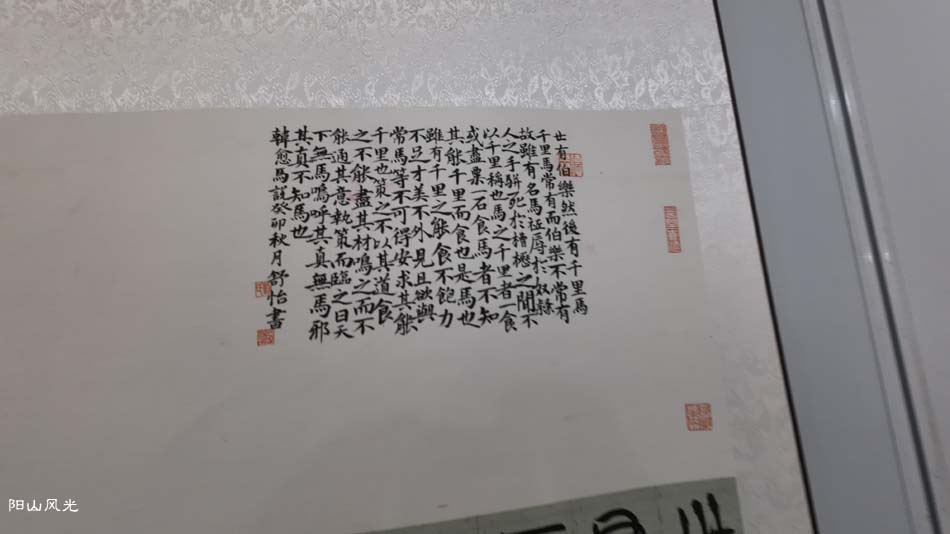 世有伯樂然後有千里馬
千里馬常有而伯樂不常有
故雖有名馬秪辱於奴隸
人之手駢死於槽櫪之間不
以千里稱也馬之千里者一食
或盡粟一石食馬者不知
其能千里而食也是馬也
雖有千里之能食不飽力
不足才美不外見且欲與
常馬等不可得安求其能
千里也策之不以其道食
之不能盡其材鳴之而不
能通其意執策而臨之曰天
下無馬嗚呼其真無馬邪
其真不知馬也
韓愈馬說癸卯秋月舒怡書
阳山风光